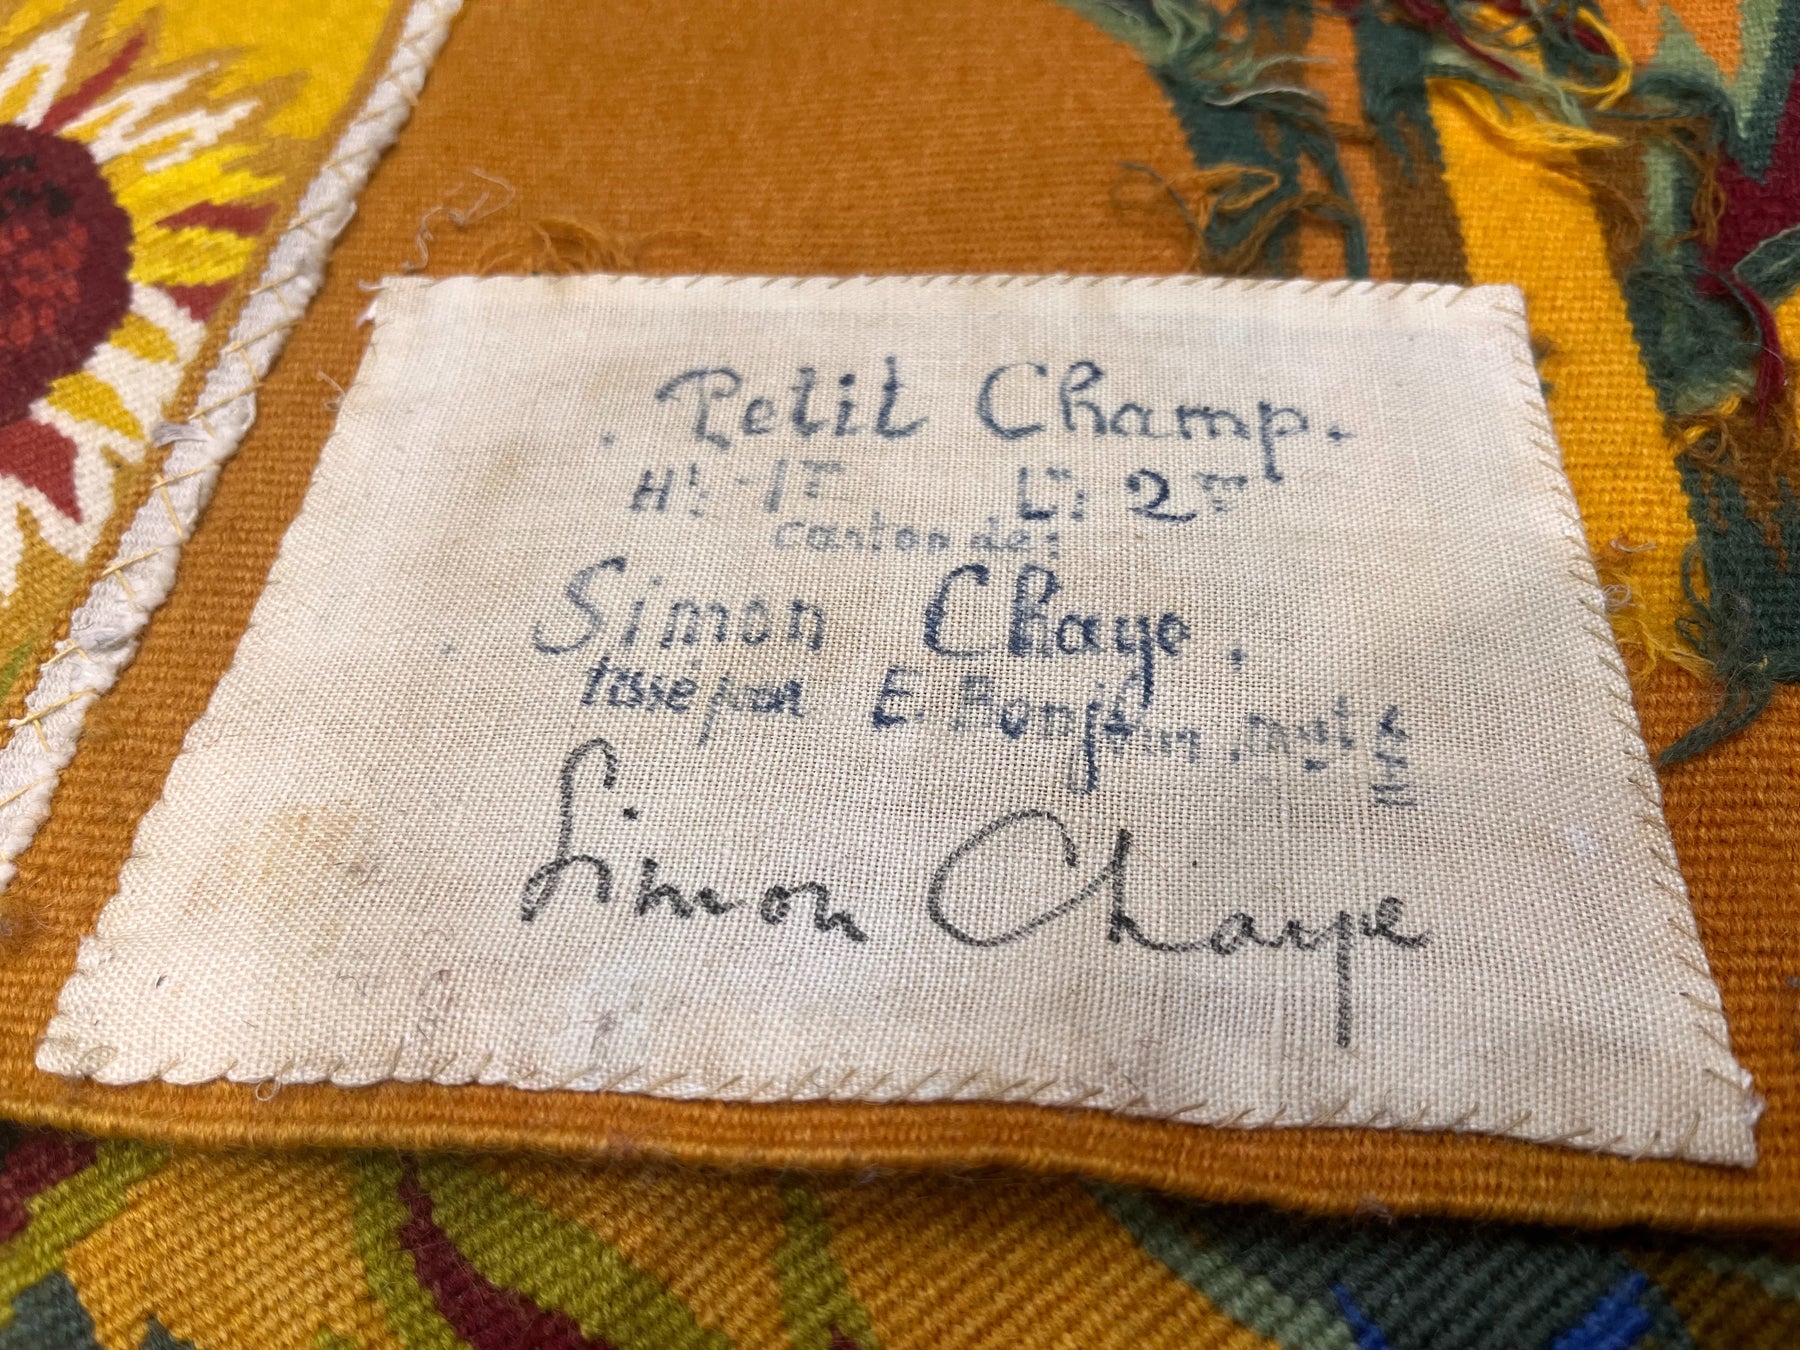 . Petit Champ.
Ht: 1m Lr: 2m
carton de:
Simon Chaye .
tissé par E.
Simon Chaye